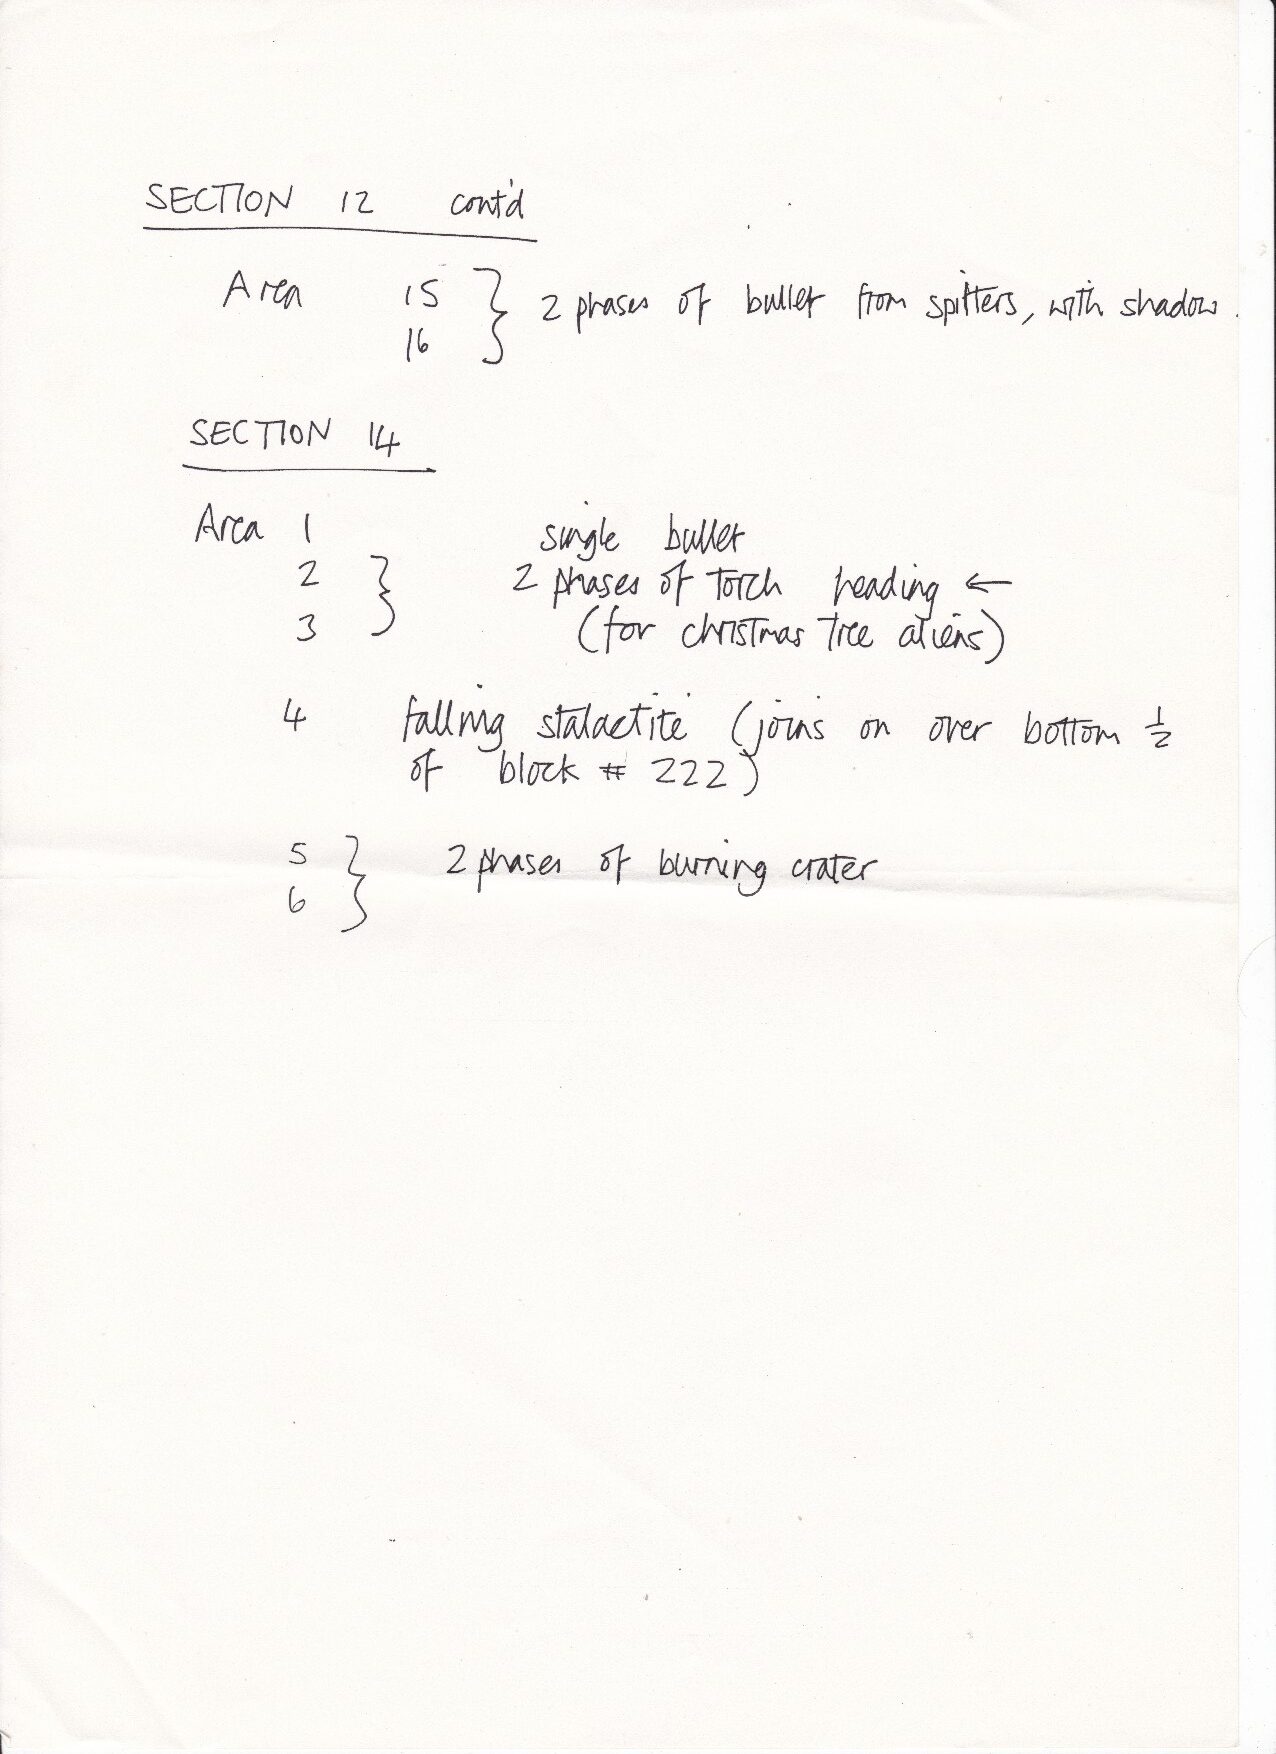 SECTION 12 cont'd
Area 15 } 2 phases of bullet from spitters, with shadow.
16
SECTION 14
Area 1 single bullet
2 } 2 phases of torch heading ←
3 (for christmas tree aliens)
4 falling stalactite (joins on over bottom ½
of block # 222)
5 } 2 phases of burning crater
6